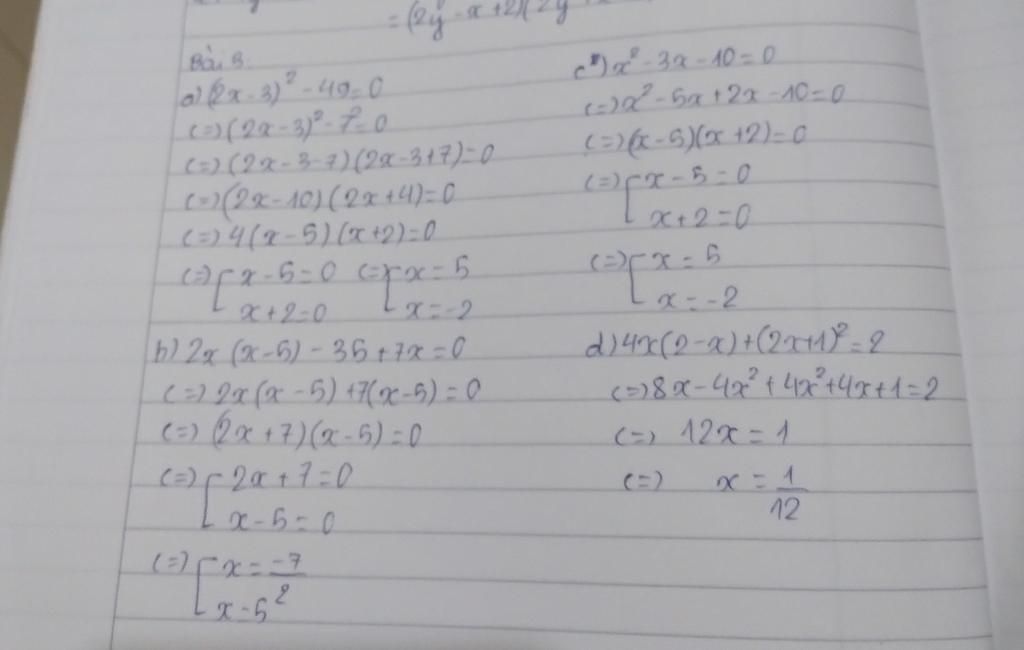 = (2y - x + 2)(2y
Bài 3.
a) (2x - 3)² - 49 = 0
(=) (2x - 3)² - 7² = 0
(=) (2x - 3 - 7)(2x - 3 + 7) = 0
(=) (2x - 10)(2x + 4) = 0
(=) 4(x - 5)(x + 2) = 0
(=) [ x - 5 = 0 (=) [ x = 5
x + 2 = 0 x = -2
b) 2x(x - 5) - 35 + 7x = 0
(=) 2x(x - 5) + 7(x - 5) = 0
(=) (2x + 7)(x - 5) = 0
(=) [ 2x + 7 = 0
x - 5 = 0
(=) [ x = -7/2
x - 5
c) x² - 3x - 10 = 0
(=) x² - 5x + 2x - 10 = 0
(=) (x - 5)(x + 2) = 0
(=) [ x - 5 = 0
x + 2 = 0
(=) [ x = 5
x = -2
d) 4x(2 - x) + (2x + 1)² = 2
(=) 8x - 4x² + 4x² + 4x + 1 = 2
(=) 12x = 1
(=) x = 1/12